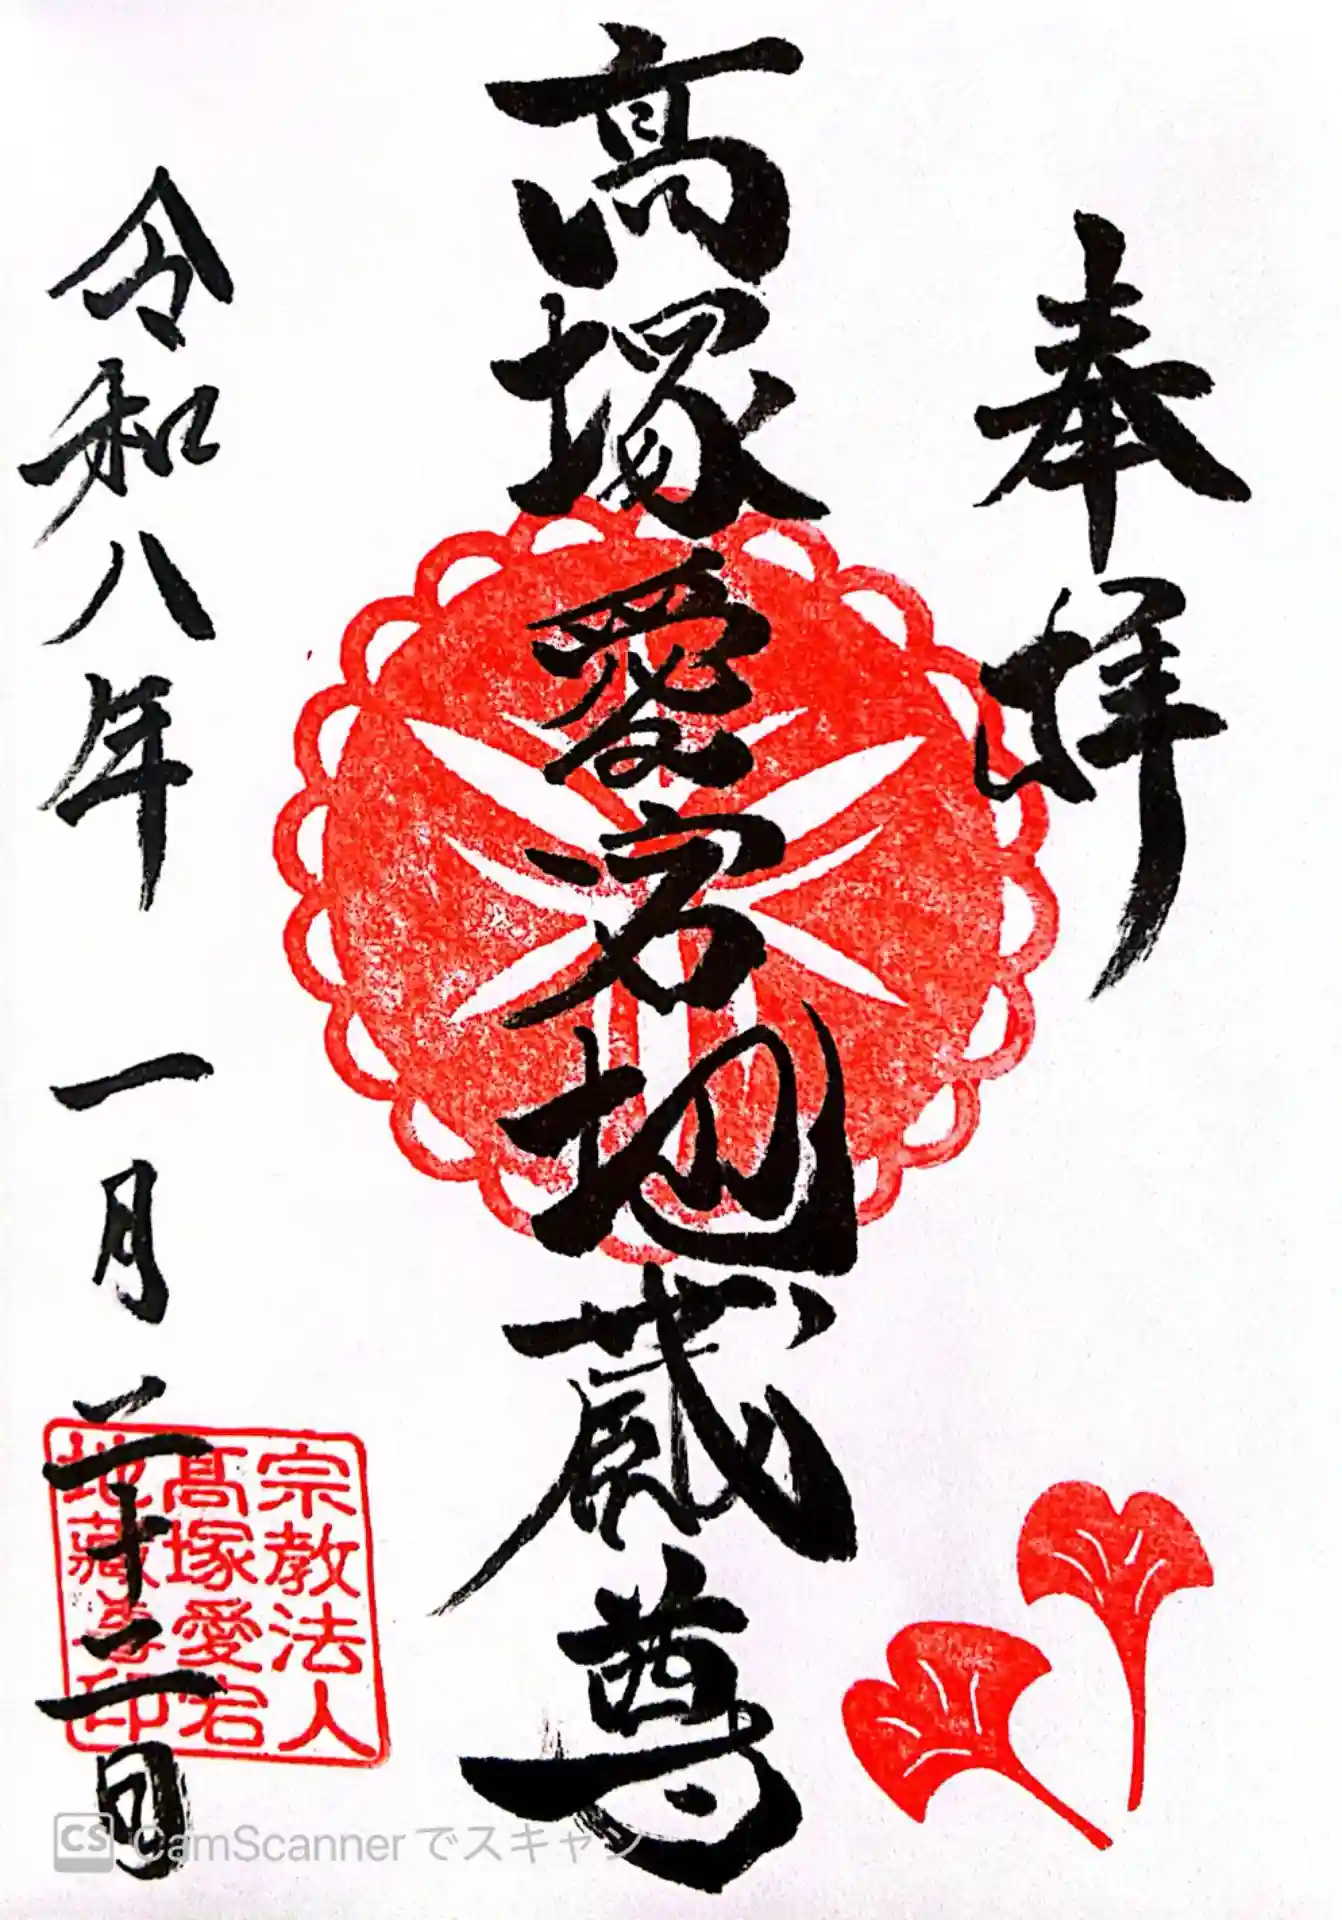 奉拝
髙塚愛宕地蔵尊
令和八年 一月二十二日
宗教法人
髙塚愛宕
地蔵尊印
CS CamScannerでスキャン